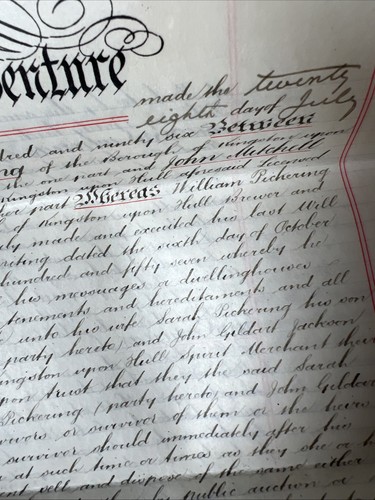 enture
made the twenty
eighth day of July
dred and ninety six Between
ng of the Borough of Kingston upon
the one part and John Mitchell
Kingston upon Hull aforesaid
her part Whereas William Pickering
of Kingston upon Hull Brewer and
ly made and executed his last Will
riting dated the sixth day of October
hundred and fifty seven whereby he
his messuages or dwellinghouses
tenements and hereditaments and all
unto his wife Sarah Pickering his son
party hereto) and John Gildart Jackson
ingston upon Hull Spirit Merchant their
pon trust that they the said Sarah
Pickering (party hereto) and John Gildart
vivors or survivor of them or the heirs
survivor should immediately after his
at such time or times as they she or h
sell and dispose of the same either
Public auction or